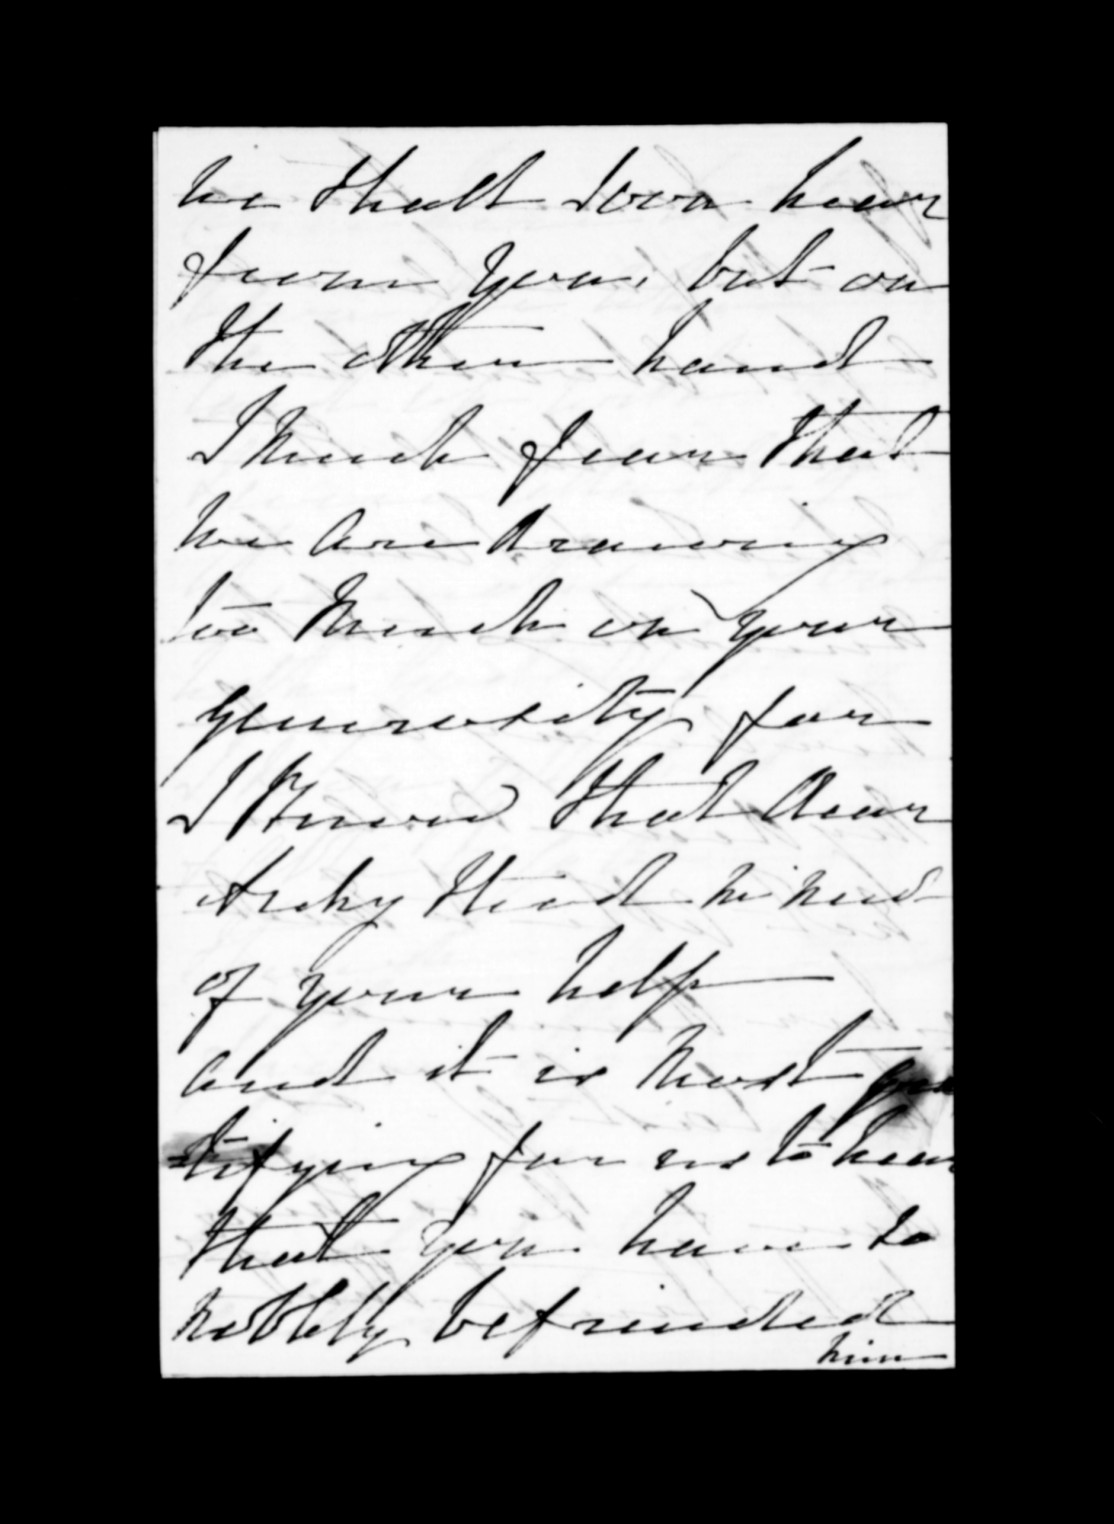 we shall soon hear
from you, but on
the other hand
I much fear that
we are drawing
too much on your
generosity for
I know that dear
Archy stood in need
of your help
and it is most gra
tifying for us to hear
that you have so
nobbly befrinded
him